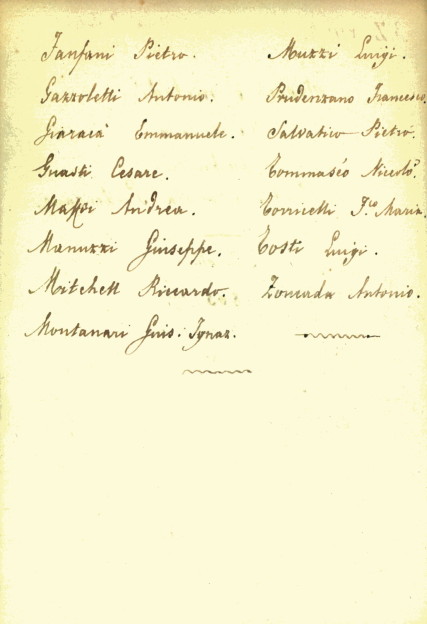 Fanfani Pietro.
Gazzoletti Antonio.
Giaracà Emmanuele.
Guasti Cesare.
Maffei Andrea.
Manuzzi Giuseppe.
Mitchell Riccardo.
Montanari Gius. Ignaz.
Muzzi Luigi.
Prudenzano Francesco.
Salvatico Pietro.
Tommaséo Niccolò.
Torricelli F.co Maria.
Tosti Luigi.
Zoncada Antonio.